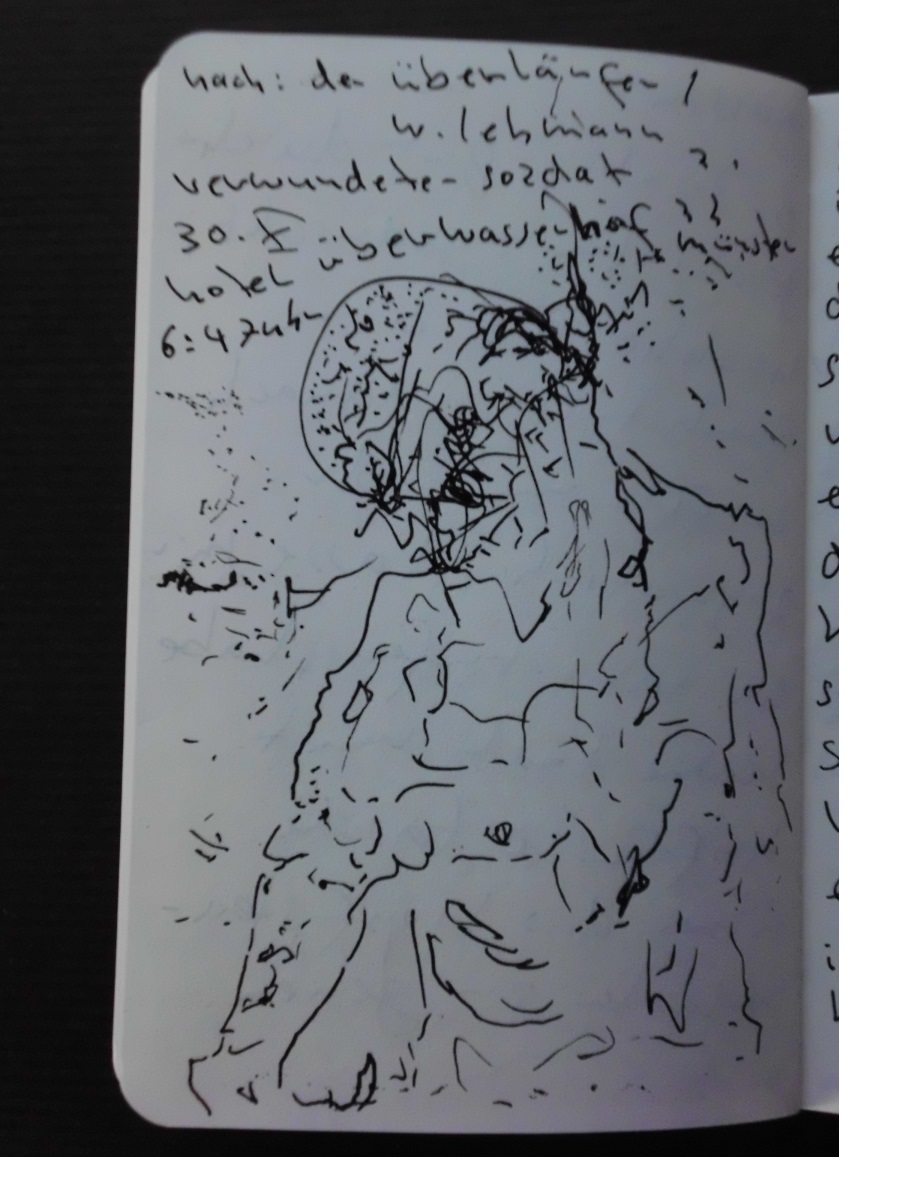 nach: der überläufer /
w. lehmann
verwundeter soldat
30. X überwasserhof münster
hotel
6:47 uhr